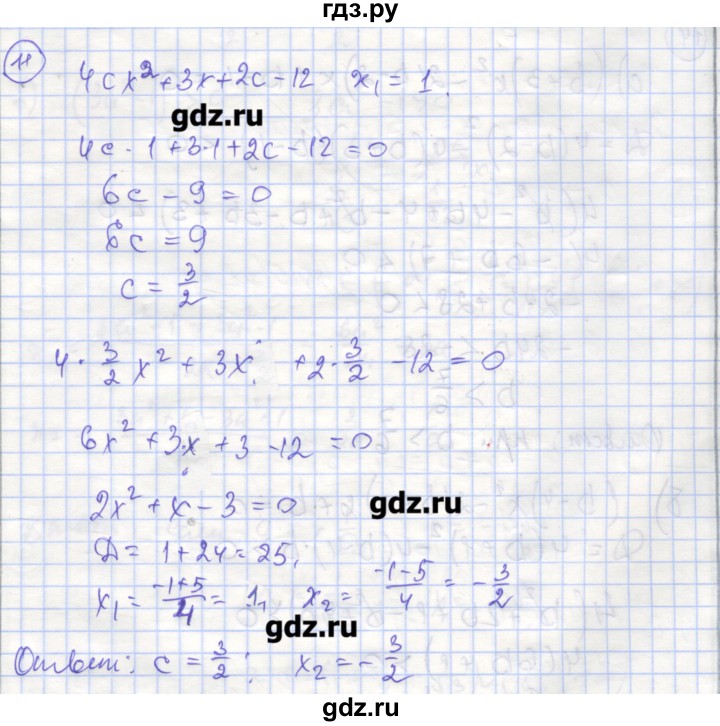 гдз.ру
11
4cx² + 3x + 2c - 12   x₁ = 1.
gdz.ru
4c · 1 + 3·1 + 2c - 12 = 0
6c - 9 = 0
6c = 9
c = 3/2
4 · 3/2 x² + 3x + 2 · 3/2 - 12 = 0
6x² + 3x + 3 - 12 = 0
2x² + x - 3 = 0
gdz.ru
D = 1 + 24 = 25,
x₁ = (-1+5)/4 = 1,   x₂ = (-1-5)/4 = -3/2
gdz.ru
Ответ: c = 3/2;   x₂ = -3/2